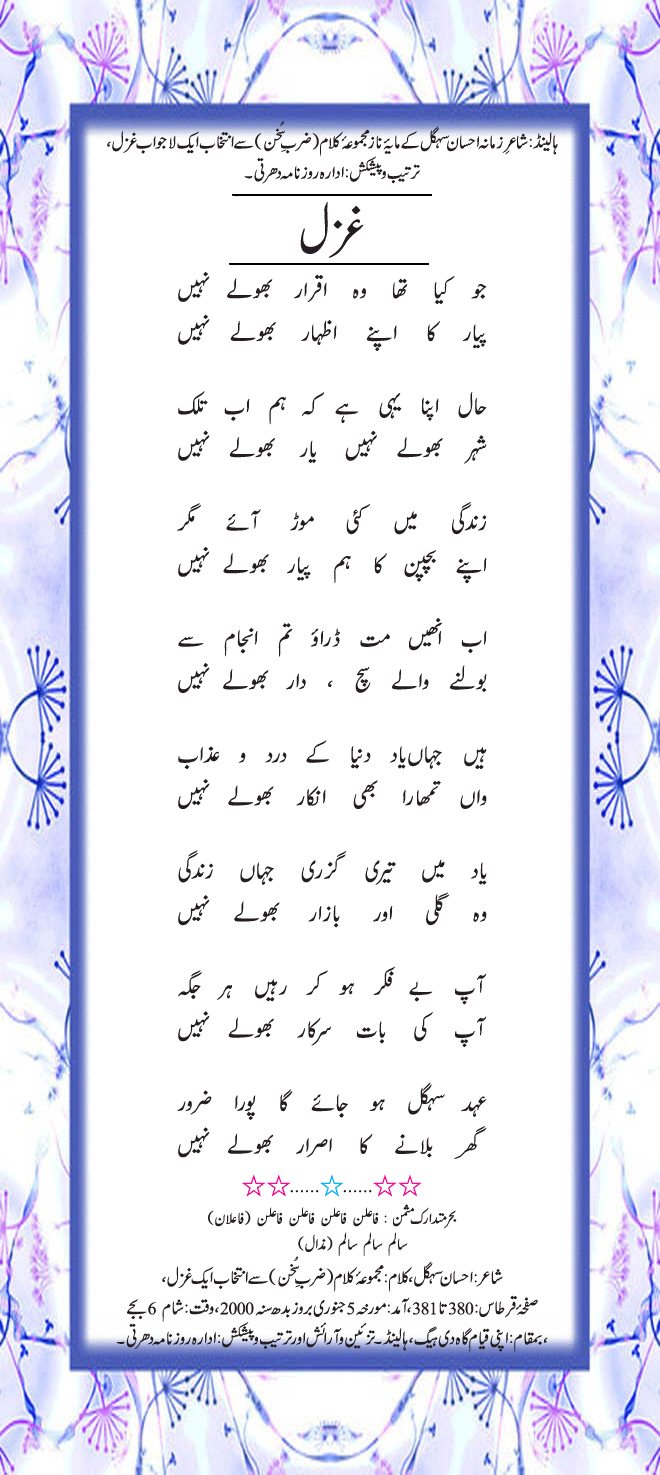 ہالینڈ: شاعرِ زمانہ احسان سہگل کے مایۂ ناز مجموعۂ کلام (ضربِ سُخن) سے انتخاب ایک لاجواب غزل،
ترتیب و پیشکش: ادارہ روزنامہ دھرتی۔
غزل
جو کیا تھا وہ اقرار بھولے نہیں
پیار کا اپنے اظہار بھولے نہیں
حال اپنا یہی ہے کہ ہم اب تلک
شہر بھولے نہیں یار بھولے نہیں
زندگی میں کئی موڑ آئے مگر
اپنے بچپن کا ہم پیار بھولے نہیں
اب انھیں مت ڈراؤ تم انجام سے
بولنے والے سچ ، دار بھولے نہیں
ہیں جہاں یاد دنیا کے درد و عذاب
واں تمھارا بھی انکار بھولے نہیں
یاد میں تیری گزری جہاں زندگی
وہ گلی اور بازار بھولے نہیں
آپ بے فکر ہو کر رہیں ہر جگہ
آپ کی بات سرکار بھولے نہیں
عہد سہگل ہو جائے گا پورا ضرور
گھر بلانے کا اصرار بھولے نہیں
بحر متدارک مثمن : فاعلن فاعلن فاعلن فاعلن (فاعلان)
سالم سالم سالم (مذال)
شاعر: احسان سہگل، کلام: مجموعۂ کلام (ضربِ سُخن) سے انتخاب ایک غزل،
صفحۂ قرطاس: 380 تا 381، آمد: مورخہ 5 جنوری بروز بدھ سنہ 2000، وقت: شام 6 بجے
، بمقام: اپنی قیام گاہ دی ہیگ، ہالینڈ۔ تزئین و آرائش اور ترتیب و پیشکش: ادارہ روزنامہ دھرتی۔